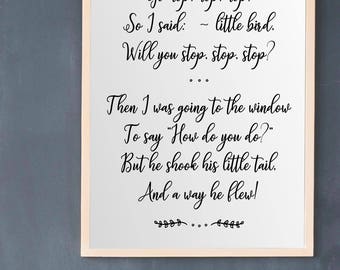 So I said: ~ little bird.
Will you stop. stop. stop?
Then I was going to the window
To say "How do you do?"
But he shook his little tail.
And a way he flew!